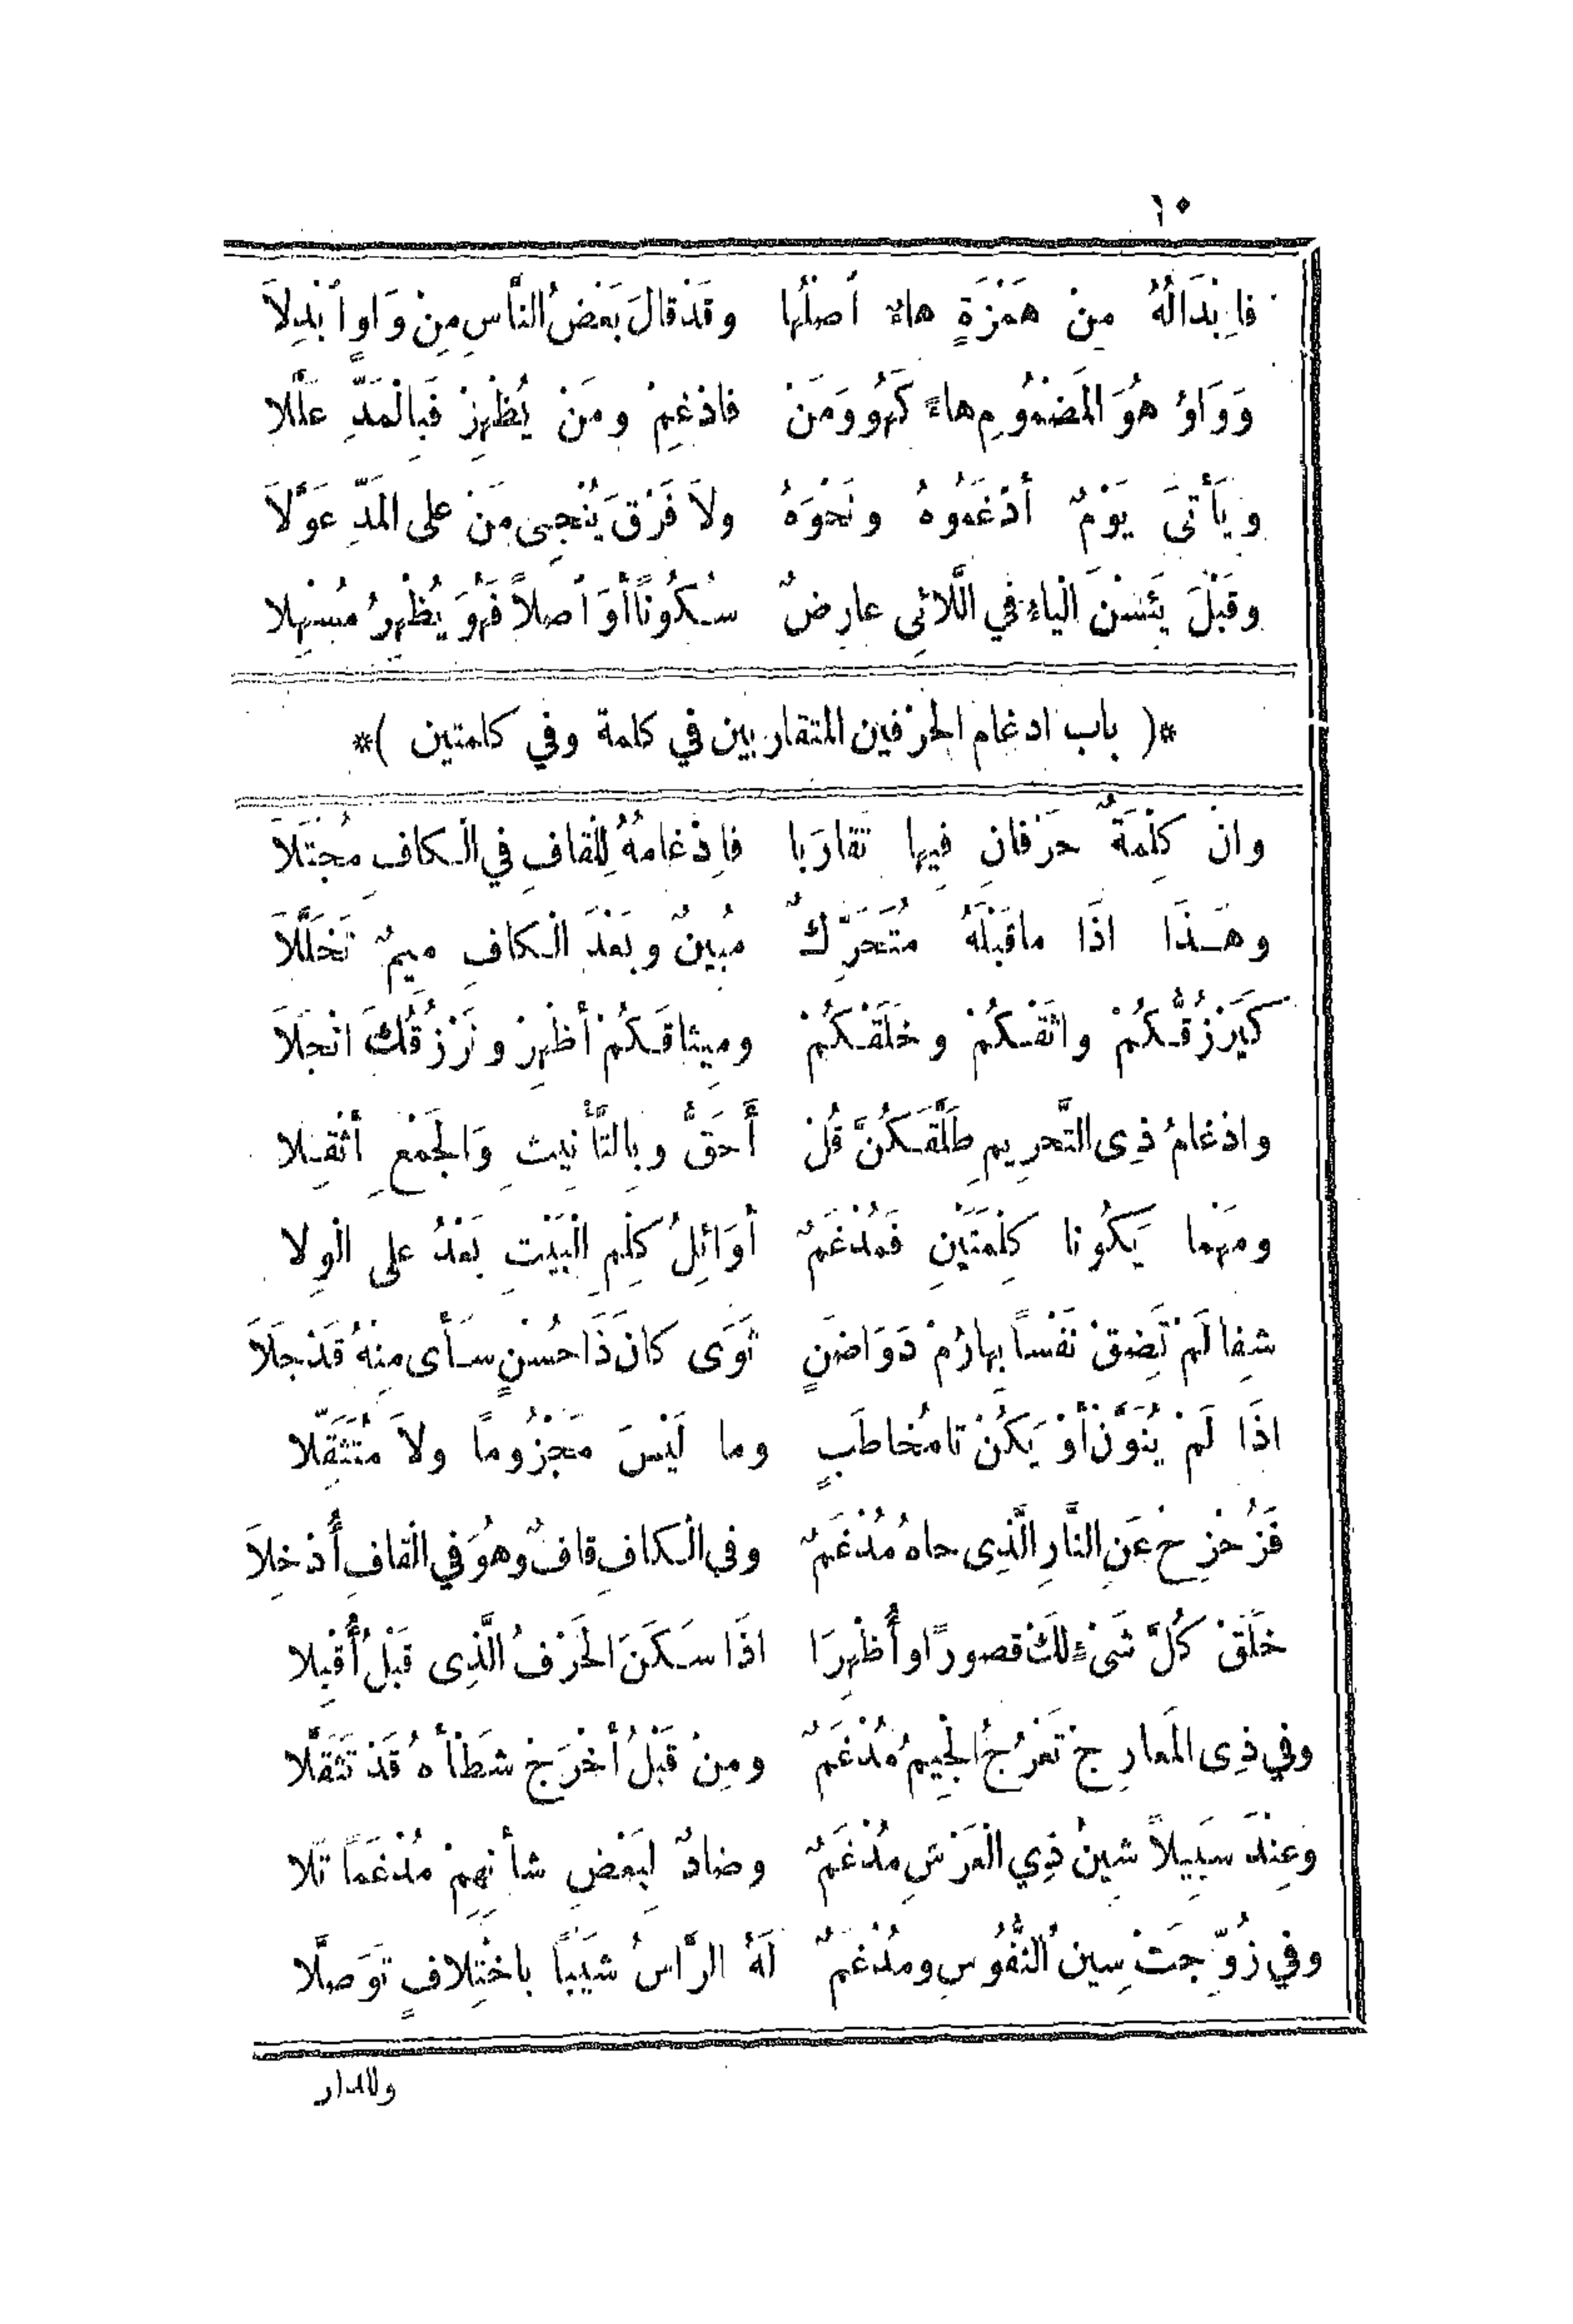 ١٠
فَإِبْدَالُهُ مِنْ هَمْزَةٍ هاءٌ أَصْلُها وقَدْ قالَ بَعْضُ النَّاسِ مِنْ وَاوٍ اُبْدِلَا
وَوَاوُ هُوَ المَضْمُومِ هاءً كَهُو وَمَنْ فادْغِمْ ومَنْ يُظْهِرْ فَبِالْمَدِّ عَلَّلا
ويَأْتِىَ يَوْمٌ أدْغَمُوهُ ونَحْوَهُ ولاَ فَرْقَ يُنْجِى مَنْ على المَدِّ عَوَّلَا
وقَبْلَ يَئِسْنَ الْياءُ في اللَّائِى عارِضٌ سُكُونًا أوَ اَصلاً فَهْوَ يُظْهِرُ مُسْهِلا
*( باب ادغام الحرْفين المتقاربين في كلمة وفي كلمتين )*
وانْ كِلْمَةٌ حَرْفانِ فِيها تَقارَبا فإِدْغامُهُ لِلْقافِ في الْكافِ مُجْتَلَا
وهَـذَا اذَا ماقَبْلَهُ مُتَحَرِّكٌ مُبِينٌ وبَعْدَ الْكافِ مِيمٌ تَخَلَّلَا
كَيَرْزُقُّكُمْ واثَقْكُمْ وخَلَقْكُمْ ومِيثاقَكُمْ أظْهِرْ ونَرْزُقُكَ انْجَلَا
وادْغامُ ذِى التَّحْرِيمِ طَلَّقَكُنَّ قُلْ أَحَقُّ وبِالتَّأْنِيثِ وَالْجَمْعِ أُثْقِلا
ومَهْما يَكُونا كِلْمَتَيْنِ فَمُدْغَمٌ أوَائِلُ كِلْمِ الْبَيْتِ بَعْدُ على الْوِلا
شِفا لَمْ تَضِقْ نَفْساً بِها رُمْ دَوَا ضَنٍ ثَوَى كانَ ذَا حُسْنٍ سَأى مِنْهُ قَدْ جَلَا
اذَا لَمْ يُنَوَّنْ أوْ يَكُنْ تا مُخاطَبٍ وما لَيْسَ مَجْزُوماً ولاَ مُتَثَقِّلا
فَزُحْزِحْ عَنِ النَّارِ الَّذِى حاهُ مُدْغَمٌ وفي الْكافِ قافٌ وهْوَ في الْقافِ أُدْخِلَا
خَلَقْ كُلَّ شَىْءٍ لَكْ قصورًا وأُظْهِرَا اذَا سَكَنَ الْحَرْفُ الَّذِى قَبْلُ أُقْبِلا
وفي ذِى المَعارِجْ تَعْرُجُ الْجِيمُ مُدْغَمٌ ومِنْ قَبْلُ أخْرَجْ شَطْأَهُ قَدْ تَثَقَّلا
وعِنْدَ سَبِيلاً شِينُ ذِي الْعَرْشِ مُدْغَمٌ وضادٌ لِبَعْضِ شأنِهِمْ مُدْغَماً تَلا
وفي زُوِّجَتْ سِينُ النُّفُوسِ ومُدْغَمٌ لَهُ الرَّاسُ شَيْباً باخْتِلافٍ تَوَصَّلا
وللدار